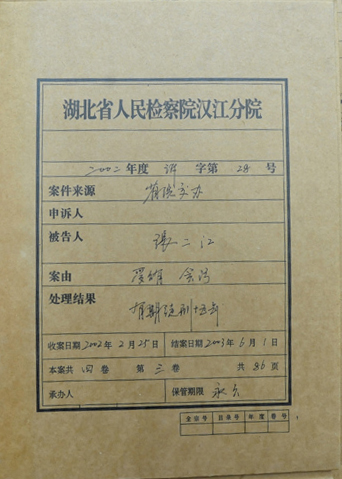 湖北省人民检察院汉江分院
二〇〇二年度 诉 字第 28 号
案件来源 省院交办
申诉人
被告人 张二江
案由 受贿 贪污
处理结果 有期徒刑十五年
收案日期 2002年2月25日 结案日期 2003年6月1日
本案共 四 卷 第 三 卷 共 86 页
承办人 保管期限 永久
全宗号 目录号 年度 卷号